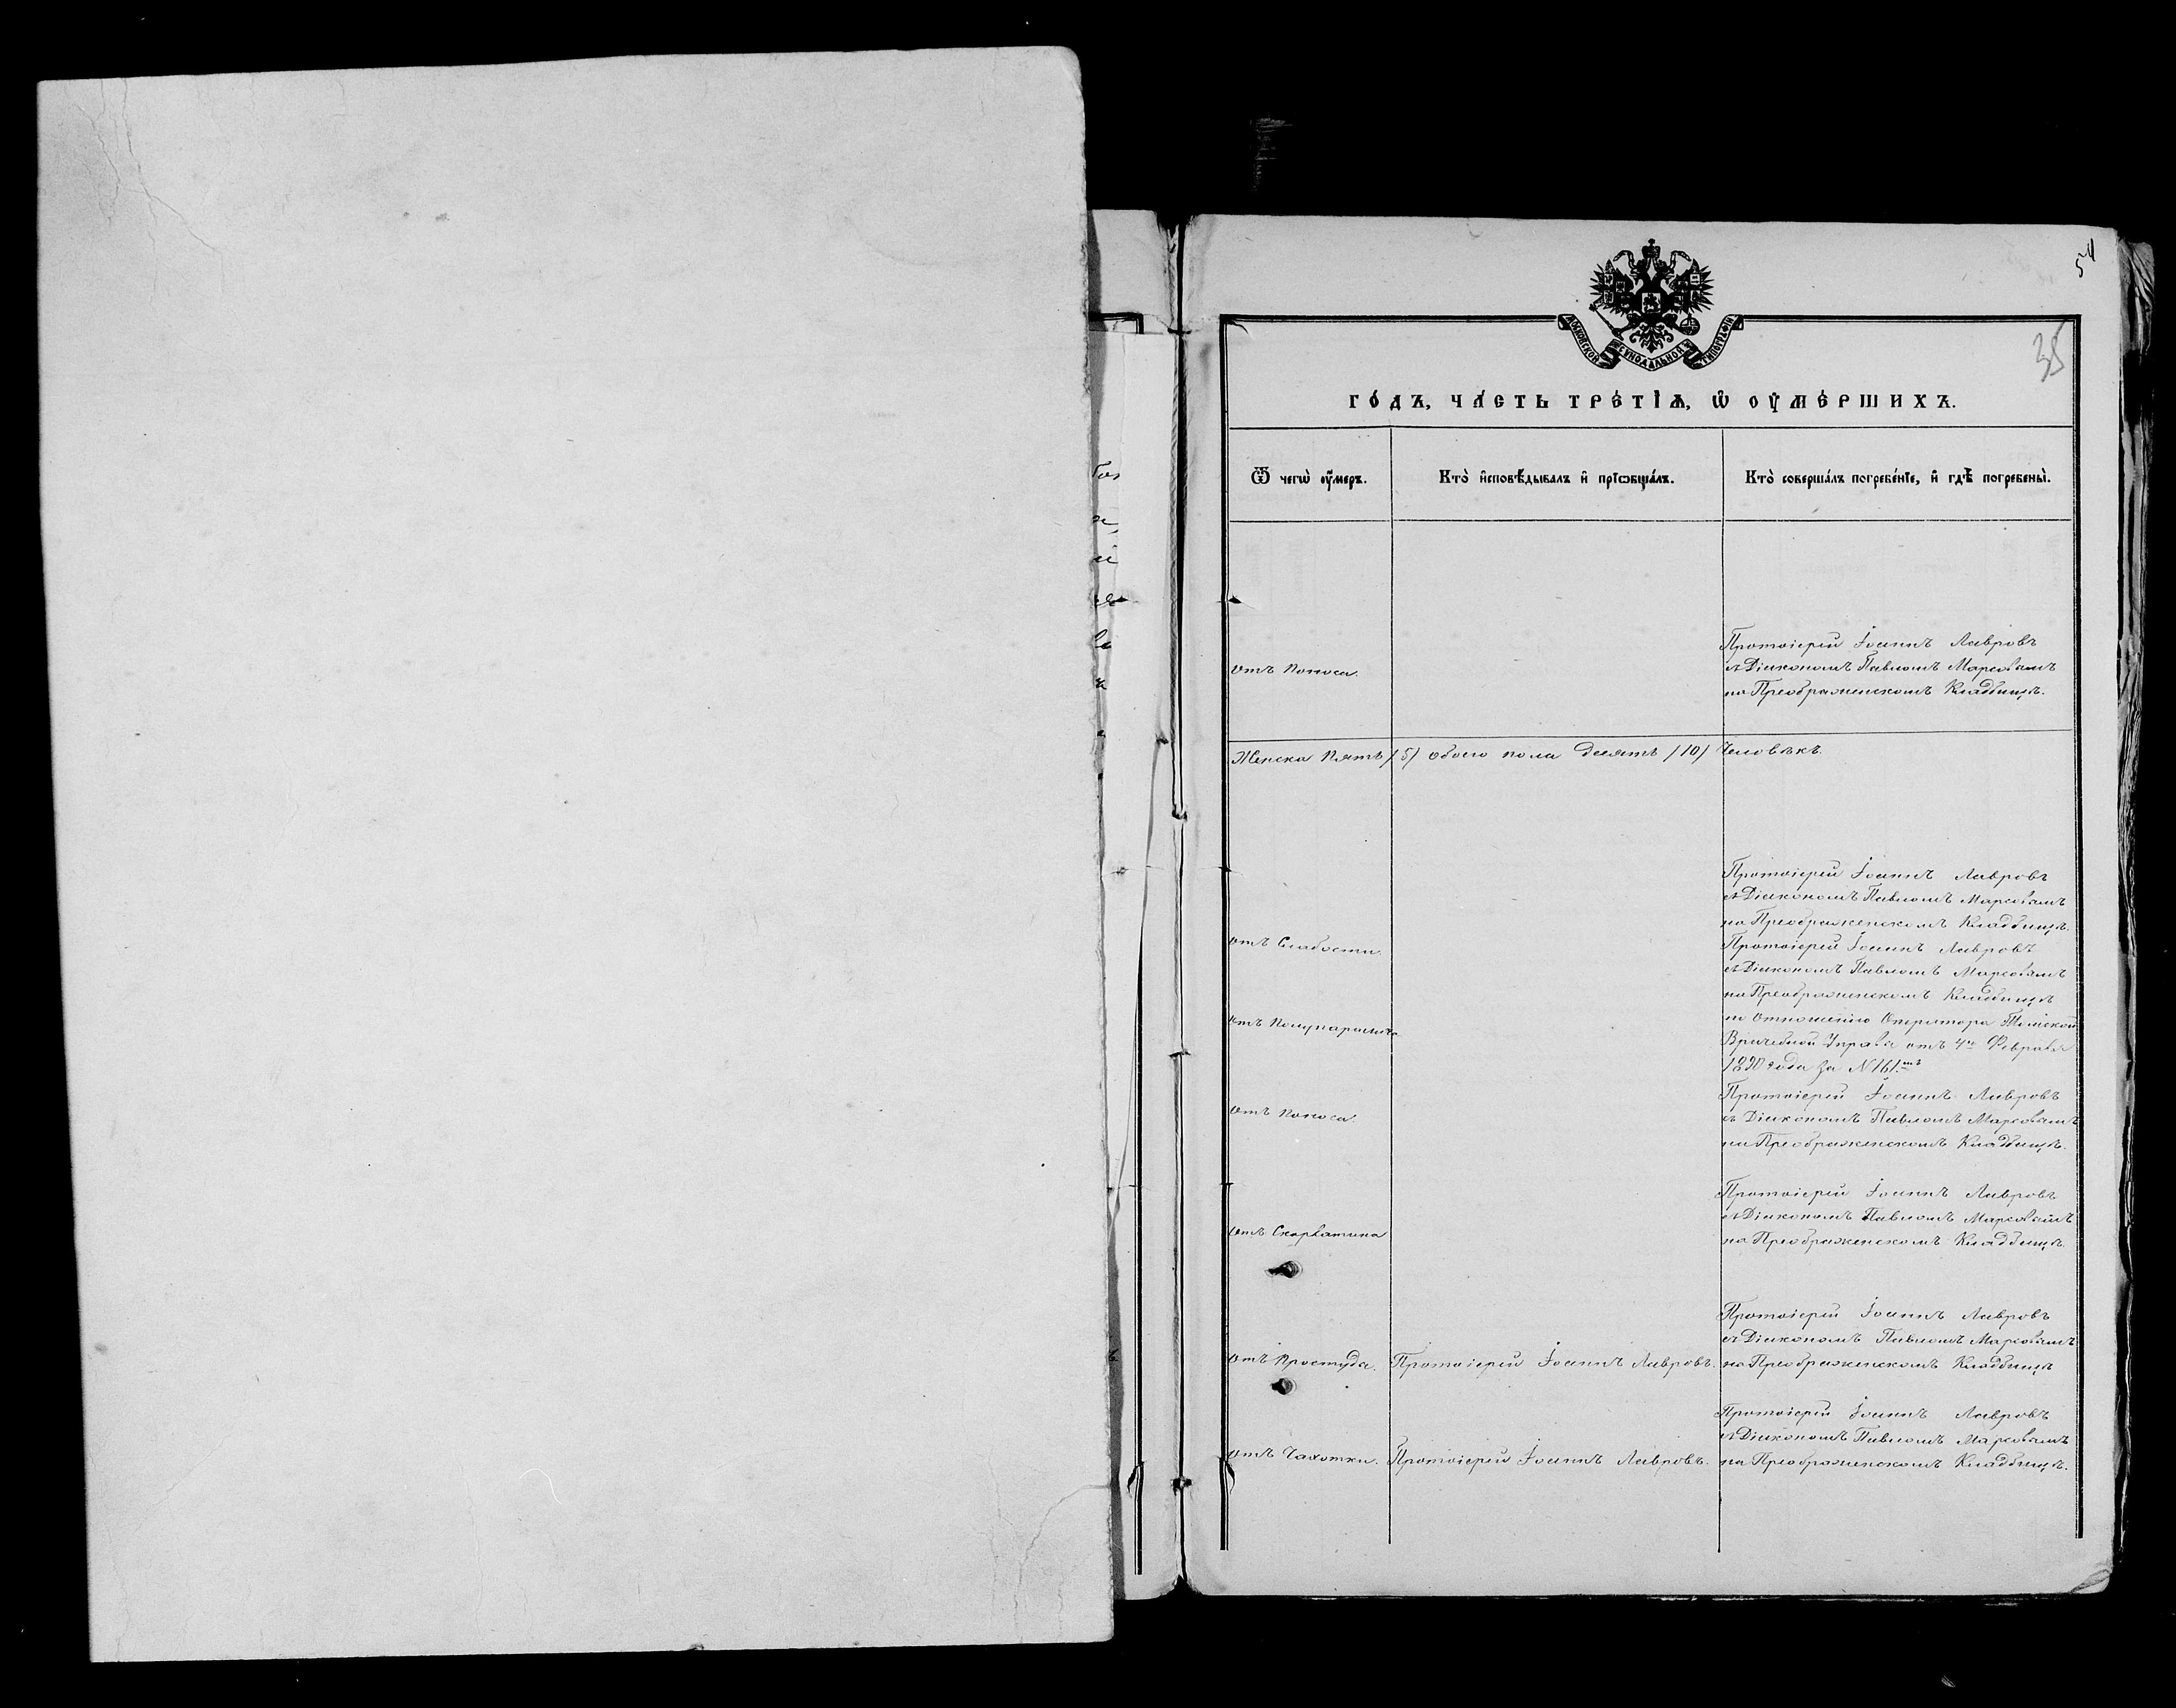 54
35
МОСКОВСКОЙ СѴНОДАЛЬНОЙ ТИПОГРАФІИ
ГО́ДЪ, ЧА́СТЬ ТРЕ́ТІѦ, Ѡ҆ ОУ҆МЕ́РШИХЪ.
Ѿ чегѡ̀ оу҆́меръ.
Кто̀ и҆сповѣ́дывалъ и҆ прїѡбща́лъ.
Кто̀ соверша́лъ погребе́нїе, и҆ гдѣ̀ погребены̀.
отъ Поноса.
Протоіерей Іоаннъ Лавровъ
съ Діакономъ Павломъ Марсовымъ
на Преображенскомъ Кладбищѣ.
Женска Пять /5/ обоего пола десять /10/ Человѣкъ.
отъ Слабости.
Протоіерей Іоаннъ Лавровъ
съ Діакономъ Павломъ Марсовымъ
на Преображенскомъ Кладбищѣ.
Протоіерей Іоаннъ Лавровъ
съ Діакономъ Павломъ Марсовымъ
на Преображенскомъ Кладбищѣ
по отношенію Оператора Томской
Врачебной Управы отъ 4го Февраля
1890 года за №161.мъ
отъ
отъ Поноса.
Протоіерей Іоаннъ Лавровъ
съ Діакономъ Павломъ Марсовымъ
на Преображенскомъ Кладбищѣ.
отъ Скарлатина
Протоіерей Іоаннъ Лавровъ
съ Діакономъ Павломъ Марсовымъ
на Преображенскомъ Кладбищѣ.
отъ Простуды.
Протоіерей Іоаннъ Лавровъ.
Протоіерей Іоаннъ Лавровъ
съ Діакономъ Павломъ Марсовымъ
на Преображенскомъ Кладбищѣ
отъ Чахотки.
Протоіерей Іоаннъ Лавровъ.
Протоіерей Іоаннъ Лавровъ
съ Діакономъ Павломъ Марсовымъ
на Преображенскомъ Кладбищѣ.